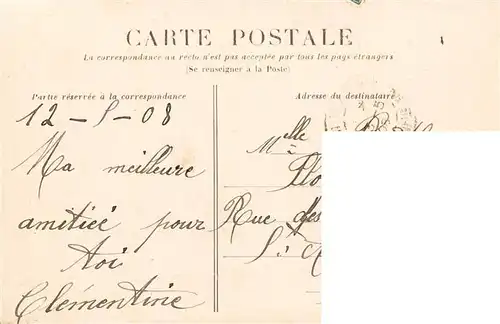 CARTE POSTALE
La correspondance au recto n'est pas acceptée par tous les pays étrangers
(Se renseigner à la Poste)
Partie réservée à la correspondance
Adresse du destinataire
12 - 5 - 08
Ma meilleure
amitiée pour
toi
Clémentine
Melle
à
Rue des